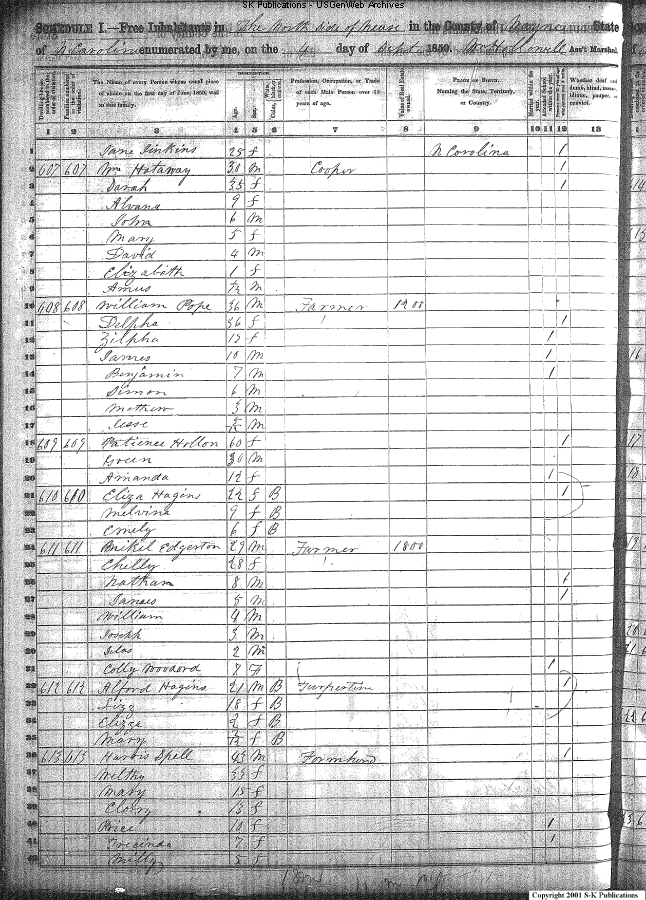 SK Publications - USGenWeb Archives
SCHEDULE I.—Free Inhabitants in The North Side of Neuse in the County of Wayne State
of N Carolina enumerated by me, on the 4 day of Sept 1850. Ass't Marshal
DESCRIPTION
Dwelling-houses numbered in the order of visitation.
Families numbered in the order of visitation.
The Name of every Person whose usual place of abode on the first day of June, 1850, was in this family.
Age.
Sex.
Profession, Occupation, or Trade of each Male Person over 15 years of age.
Value of Real Estate owned.
PLACE OF BIRTH. Naming the State, Territory, or Country.
Married within the year.
Whether deaf and dumb, blind, insane, idiotic, pauper, or convict.
1 2 3 4 5 6 7 8 9 10 11 12 13
1 Jane Jinkins 25 f N Corolina 1
2 607 607 Wm Hataway 38 m Cooper 1
3 Sarah 35 f 1
4 Alvana 9 f
5 John 6 m
6 Mary 5 f
7 David 4 m
8 Elizabath 1 f
9 Amus m
10 608 608 William Pope 36 m Farmer 1200
11 Delpha 36 f 1
12 Zilpha 13 f 1
13 James 10 m 1
14 Benjamin 7 m 1
15 Simon 6 m
16 Mathew 3 m
17 Jesse m
18 609 609 Patience Hollon 60 f 1
19 Green 30 m
20 Amanda 12 f 1
21 610 610 Eliza Hagins 22 f B 1
22 Melvina 9 f B
23 Emely 6 f B
24 611 611 Edgerton 29 m Farmer 1800
25 Chelly 28 f
26 Nathan 8 m 1
27 James 5 m 1
28 William 4 m
29 Joseph 3 m
30 Silas 2 m
31 Colly Woodard 7 f 1
32 612 612 Alford Hagins 21 m B Turpertine 1
33 Lizz 18 f B
34 Elizze f B
35 Mary f B
36 613 613 Harris Spell 43 m Farmhand 1
37 Welthy 33 f
38 Mary 15 f
39 13 f
40 Price 10 f 1
41 Trecinda 7 f 1
42 Milly 5 f
Copyright 2001 S-K Publications